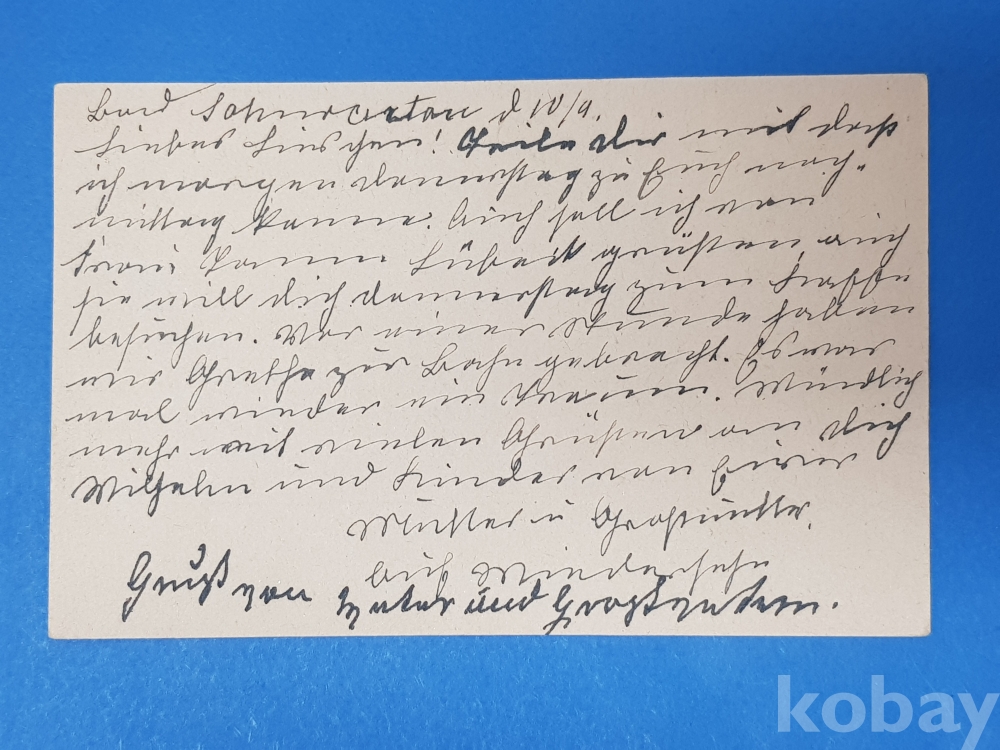 Bad Schwartau d 10/9.
Liebes Lieschen! Teile dir mit daß
ich morgen donnerstag zu Euch nach-
mittag komme. Auch soll ich von
Frau Lübeck grüßen, auch
sie will dich donnerstag zum Kaffe
besuchen. Vor einer Stunde haben
wir Grethe zur Bahn gebracht. Es war
mal wieder ein Traum. Mündlich
mehr mit vielen Grüßen an dich
Wilhelm und Kinder von Eurer
Mutter u Großmutter.
Auf Wiedersehn
Gruß von Vater und Großvatern.
kobay